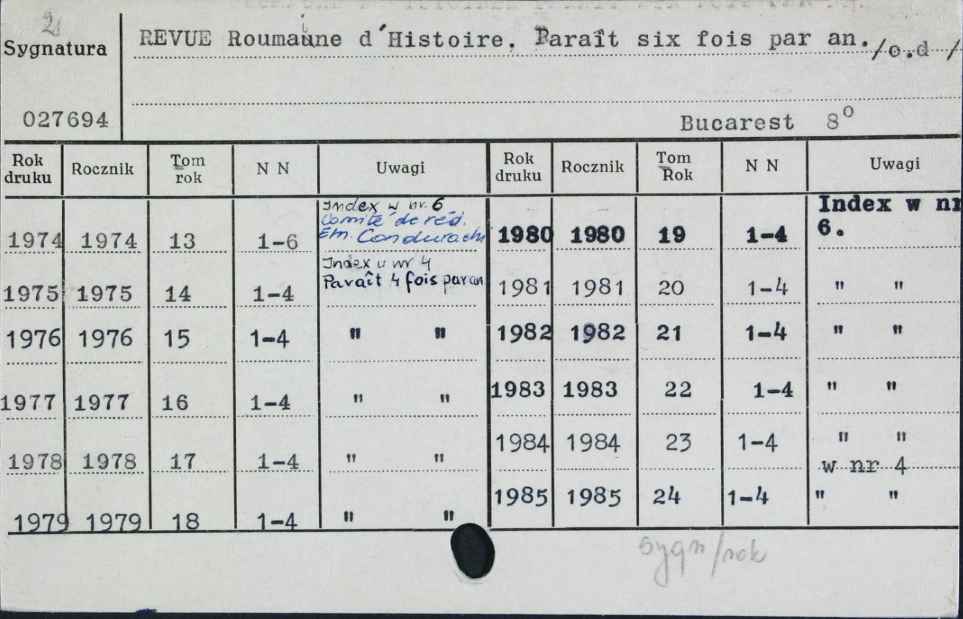 2
Sygnatura
REVUE Roumaine d'Histoire. Paraît six fois par an./c.d/
027694
Bucarest 8⁰
Rok druku Rocznik Tom rok N N Uwagi Rok druku Rocznik Tom Rok N N Uwagi
1974 1974 13 1-6 Index w nr. 6
Comité de réd.
Em. Condurachi
1980 1980 19 1-4 Index w nr
6.
1975 1975 14 1-4 Index w nr 4
Paraît 4 fois par an
1981 1981 20 1-4 " "
1976 1976 15 1-4 " " 1982 1982 21 1-4 " "
1977 1977 16 1-4 " " 1983 1983 22 1-4 " "
1978 1978 17 1-4 " " 1984 1984 23 1-4 " "
w nr 4
1979 1979 18 1-4 " " 1985 1985 24 1-4 " "
sygn/rok